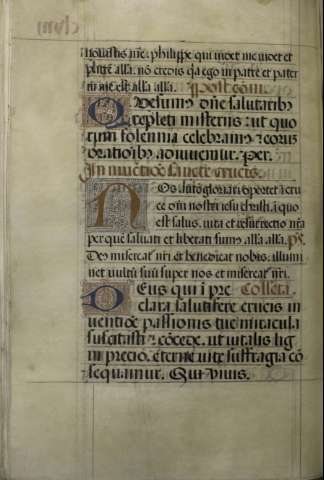 novistis me: philippe qui videt me videt et
patrē. alla. nō credis q̄a ego in patre et pater
in me est alla alla. Post com̄.
Quesum9 dn̄e salutarib9
repleti misteriis: ut quo
rum solemnia celebram9 ⁊ eorū
orationib9 adiuvemur. Per.
In invētiōe sancte crucis.
Nos aūt gloriari oportet i cru
ce dn̄i nostri iesu christi, i quo
est salus, vita et resurrectio nr̄a
per quē salvati et liberati sum9. alla alla. ps̄.
De9 misereat̄ nr̄i et benedicat nobis: illumi
net vultū suū super nos et misereat̄ nr̄i.
Deus qui ī pre Collecta.
clara salutifere crucis in
ventiōe passionis tue miracula
suscitasti: cōcede. ut vitalis lig
ni precio, eterne vite suffragia cō
sequamur. Qui vivis.